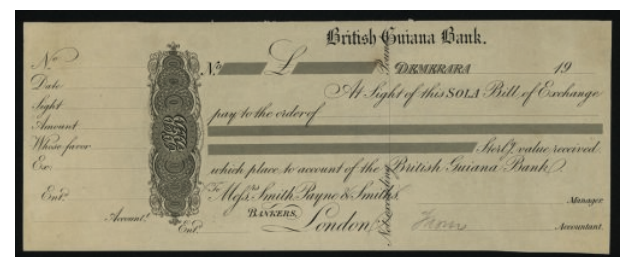 No
Date
Sight
Amount
Whose favor
Ex.
Ent.d
Account.t
Ent.d
British Guiana Bank.
No. £ DEMERARA 19
At Sight of this SOLA Bill of Exchange
pay to the order of
Sterl.g value received
which place to account of the British Guiana Bank.
To Mess.rs Smith Payne & Smiths,
BANKERS,
London
Manager
Accountant.
Not exceeding